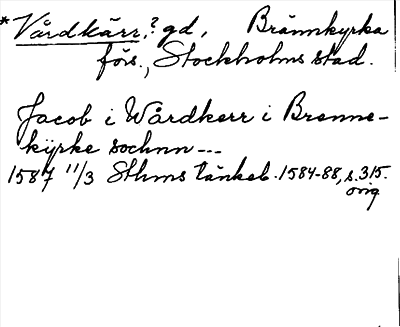 *Vårdkärr,? gd, Brännkyrka
förs., Stockholms stad.
Jacob i Wårdkerr i Brenne-
kyrke sochnn ---
1587 11/3 Sthms tänkeb. 1584-88, s. 315.
orig